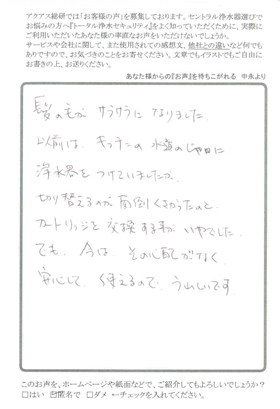 アクアス総研では「お客様の声」を募集しております。セントラル浄水器選びで
お悩みの方へ『トータル浄水セキュリティ』をよく知っていただくために、実際に
ご利用いただいたあなた様の率直なお声をいただけないでしょうか。
サービスや会社に関して、また使用されての感想文、他社との違いなど何でも
ありますので、お気づきのことをお寄せください。文章でもイラストでもご自由に
お書きの上、お送りください。
あなた様からの『お声』を待ちこがれる 中永より
髪の毛が サラサラに なりました。
以前は、キッチンの 水道のじゃ口に
浄水器を つけていましたが、
切り替えるのが 面倒くさかったのと
カートリッジを 交換する事が いやでした。
でも、今は、その心配がなく
安心して、使えるので、うれしいです
このお声を、ホームページや紙面などで、ご紹介してもよろしいでしょうか？
□はい ☑匿名で □ダメ ←チェックを入れてください。